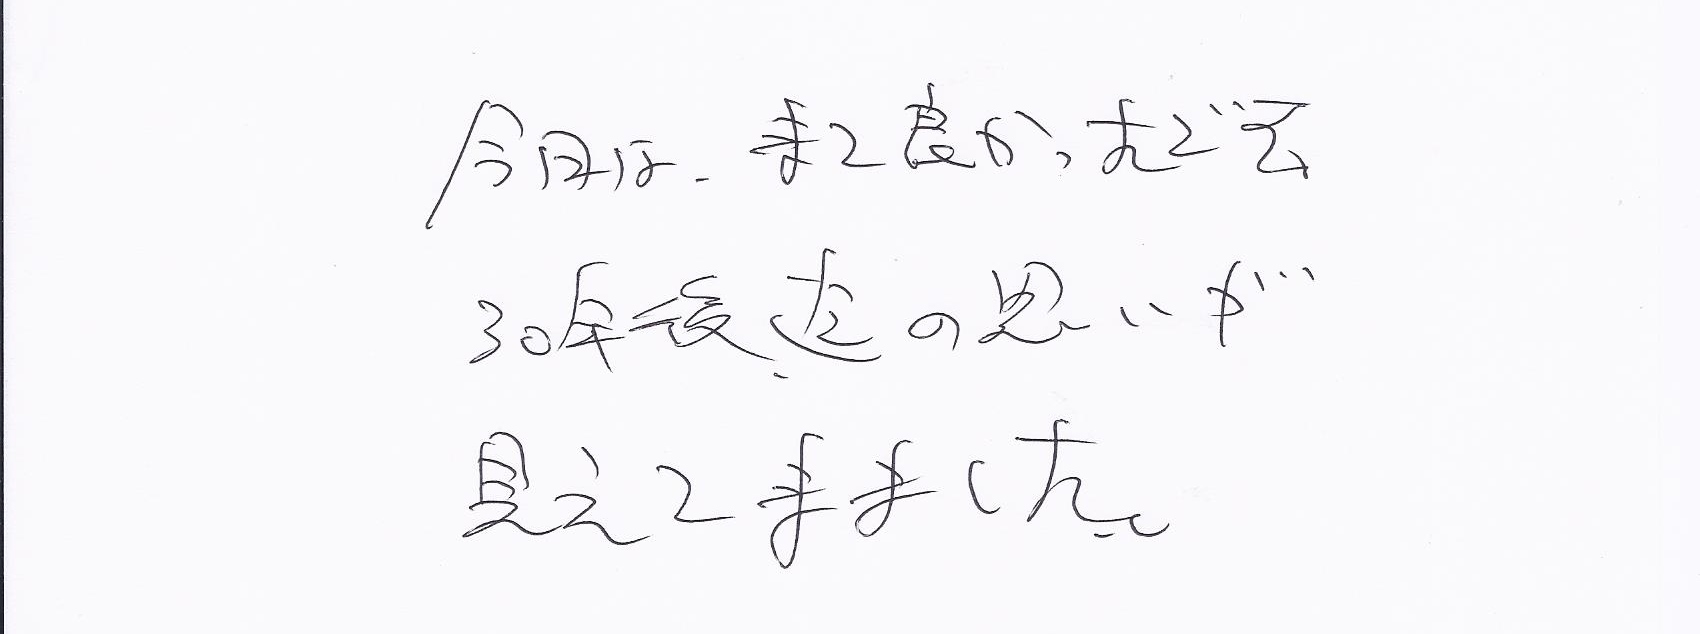 今日は、来て良かったです
30年後迄の思いが
見えてきました。